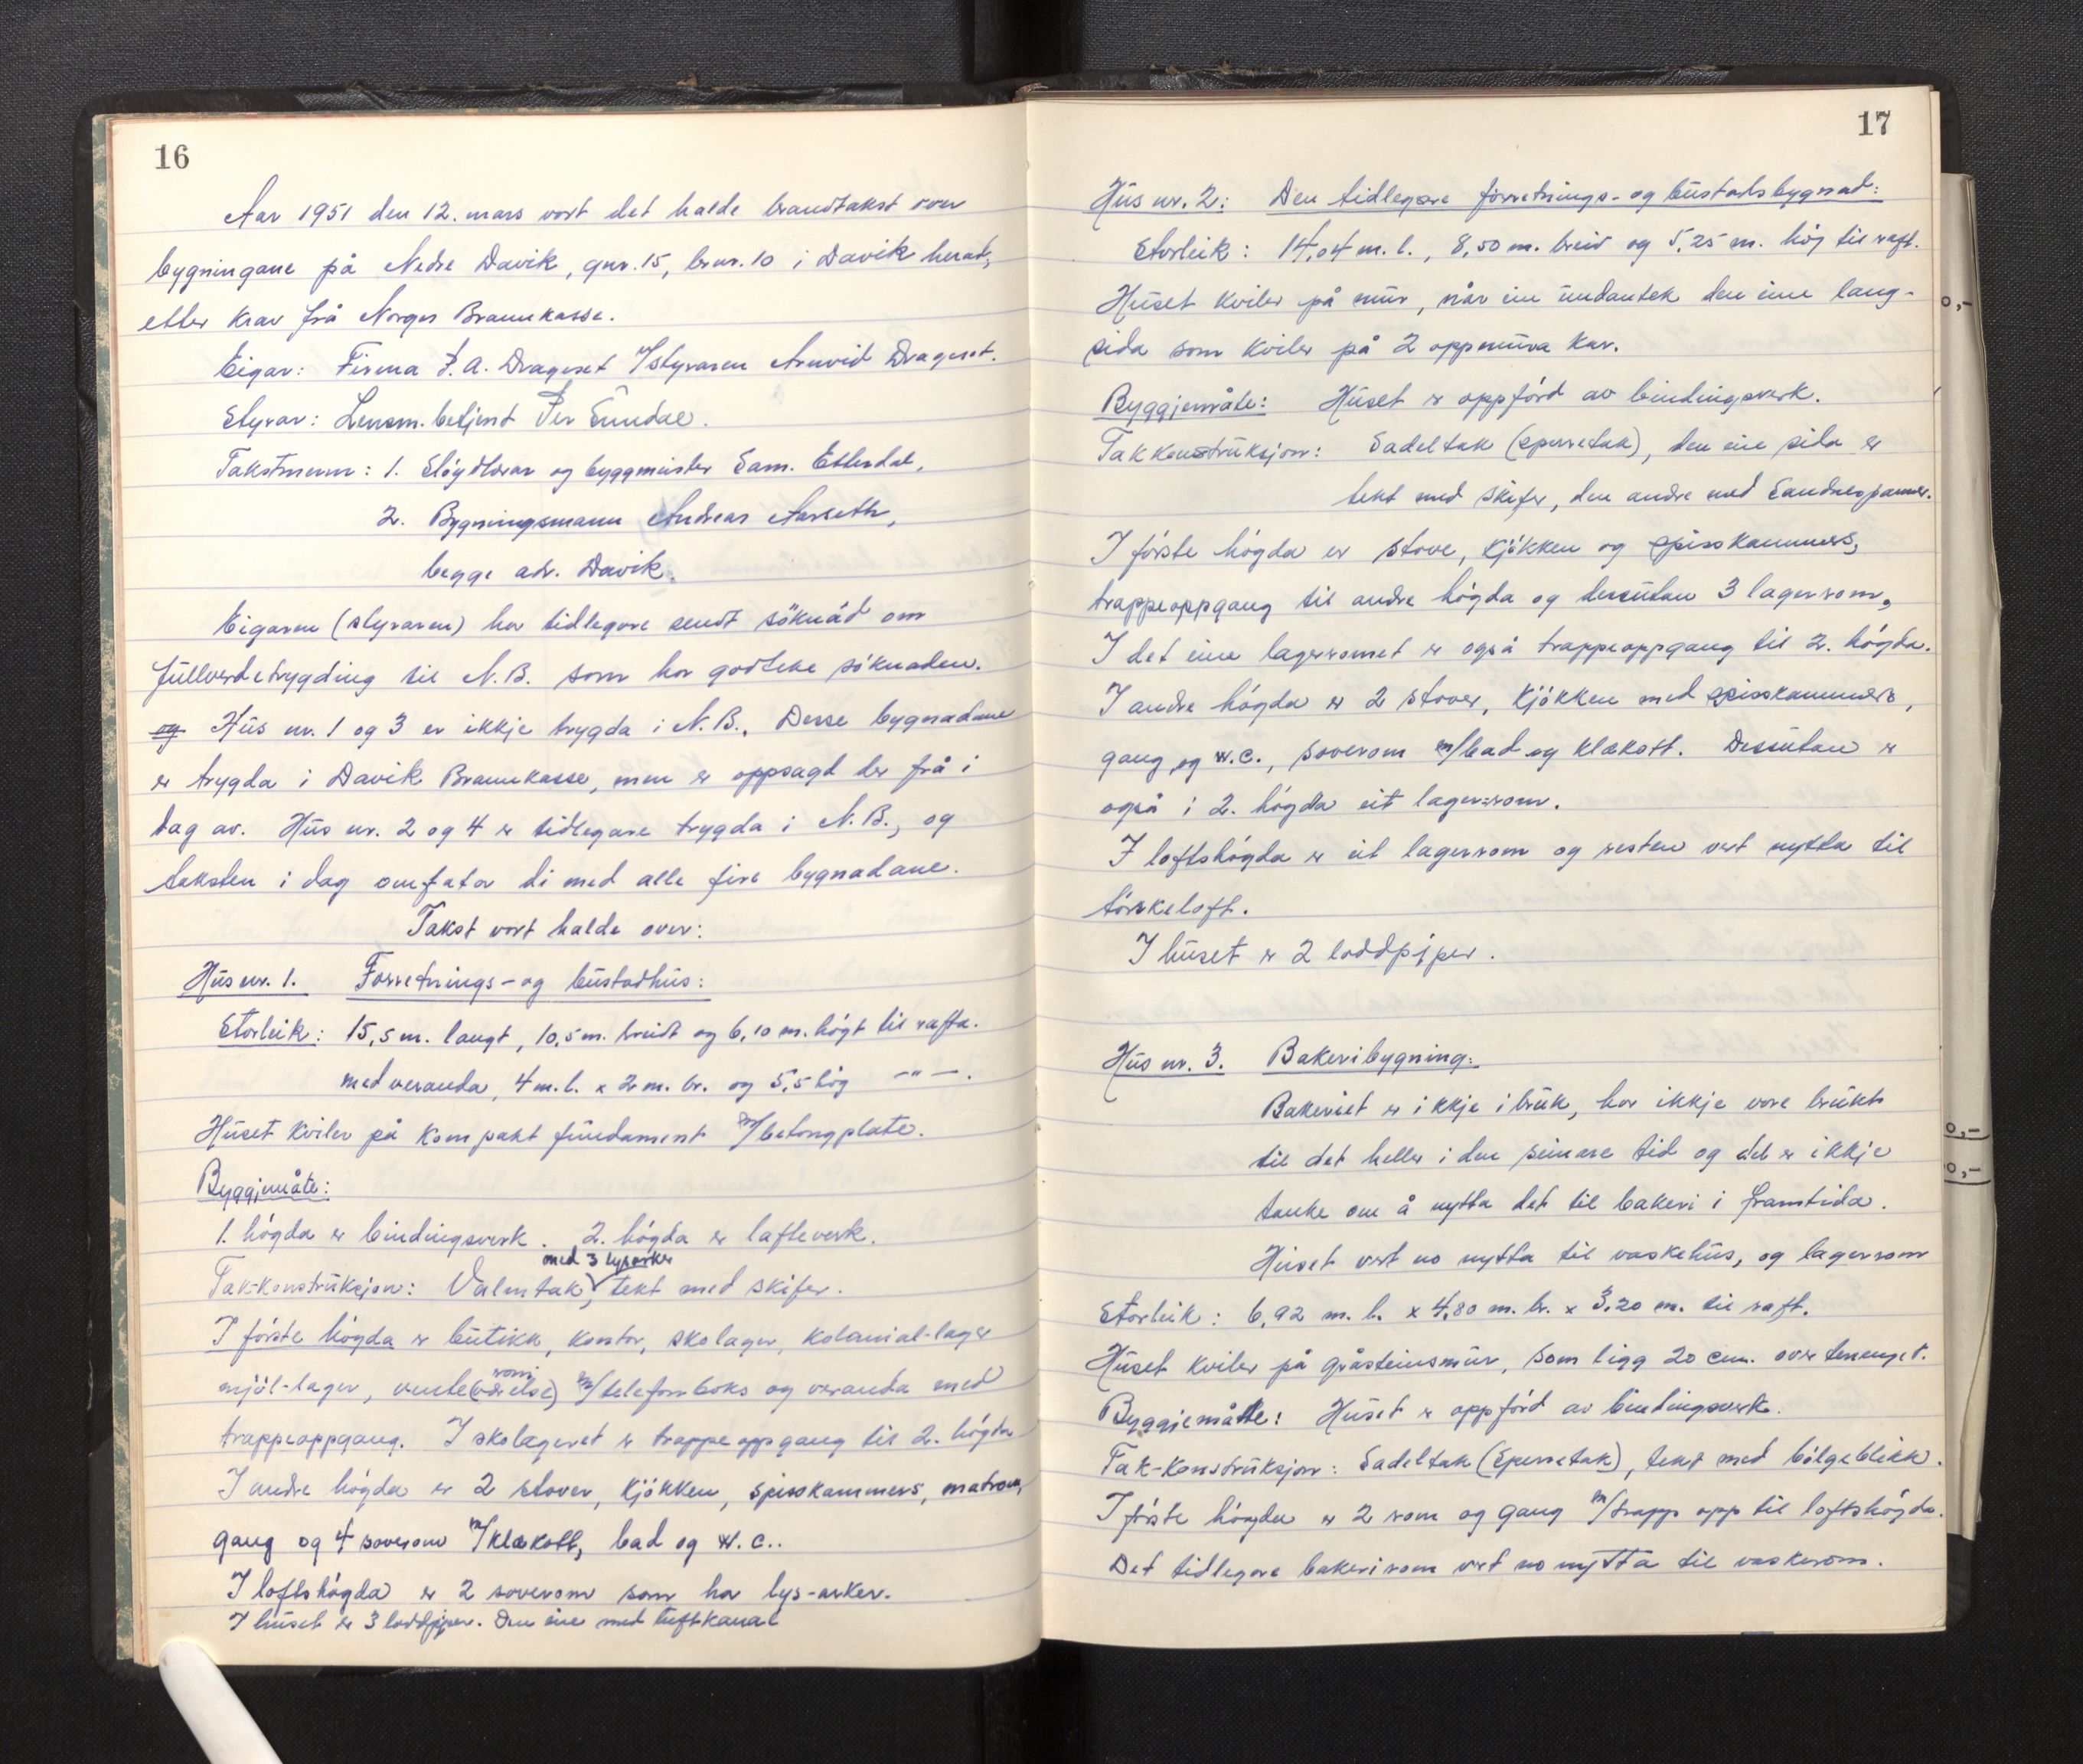 16
Aar 1951 den 12. mars vart det halde branntakst over
bygningane på Nedre Davik, gnr. 15, brnr. 10 i Davik herad,
etter krav frå Norges Brannkasse.
Eigar: Firma J. A. Drageset v/styraren Arnvid Drageset.
Styrar: Lensm. betjent Per Sundal.
Takstmenn: 1. Sløydlærar og byggmeister Sam. Endal,
2. Bygningsmann Andreas Aarseth,
begge adr. Davik.
Eigaren (styraren) har tidlegare sendt söknad om
fullverdetrygding til N.B. som har godteke söknaden.
og Hus nr. 1 og 3 er ikkje trygda i N.B. Desse bygnadane
er trygda i Davik Brannkasse, men er oppsagd der frå i
dag av. Hus nr. 2 og 4 er tidlegare trygda i N.B., og
taksten i dag omfatar di med alle fire bygnadane.
Takst vart halde over:
Hus nr. 1. Forretnings- og bustadhus:
Storleik: 15,5 m. langt, 10,5 m. breidt og 6,10 m. högt til rafta.
med veranda, 4 m. l. x 2 m. br. og 5,5 hög —"—.
Huset kviler på kompakt fundament m/betongplate.
Byggjemåte:
1. högda er bindingsverk. 2. högda er lafteverk.
med 3 lysarker
Tak-konstruksjon: Valmtak, tekt med skifer.
I förste högda er butikk, kontor, skolager, kolonial-lager
rom
mjöl-lager, vente(værelse) m/telefonboks og veranda med
trappeoppgang. I skolageret er trappeoppgang til 2. högda
I andre högda er 2 stover, kjökken, spisskammers, matrom,
gang og 4 soverom m/klekott, bad og w.c..
I loftshögda er 2 soverom som har lys-arker.
I huset er 3 loddpiper. Den eine med luftkanal
17
Hus nr. 2: Den tidlegare forretnings- og bustadsbygnad:
Storleik: 14,04 m. l., 8,50 m. breid og 5,25 m. hög til raft.
Huset kviler på mur, når ein undantek den eine lang-
sida som kviler på 2 oppmura kar.
Byggjemåte: Huset er oppförd av bindingsverk.
Takkonstruksjon: Sadeltak (sperretak), den eine sida er
tekt med skifer, den andre med Sandnespanner.
I förste högda er stove, kjökken og spisskammers,
trappeoppgang til andre högda og dessutan 3 lagerrom,
I det eine lagerromet er også trappeoppgang til 2. högda.
I andre högda er 2 stover, kjökken med spisskammers,
gang og w.c., soverom m/bad og klekott. Dessutan er
også i 2. högda eit lagerrom.
I loftshögda er eit lagerrom og resten vert nytta til
törkeloft.
I huset er 2 loddpiper.
Hus nr. 3. Bakeribygning:
Bakeriet er ikkje i bruk, har ikkje vore brukt
til det heller i den seinare tid og det er ikkje
tanke om å nytta det til bakeri i framtida.
Huset vert no nytta til vaskehus, og lagerrom
Storleik: 6,92 m. l. x 4,80 m. br. x 3,20 m. til raft.
Huset kviler på gråsteinsmur, som ligg 20 cm. over terrenget.
Byggjemåte: Huset er oppförd av bindingsverk.
Tak-konstruksjon: Sadeltak (Sperretak), tekt med bölgeblikk.
I förste högda er 2 rom og gang m/trapp opp til loftshögda.
Det tidlegare bakerirom vert no nytta til vaskerom.
0,-
0,-
0,-